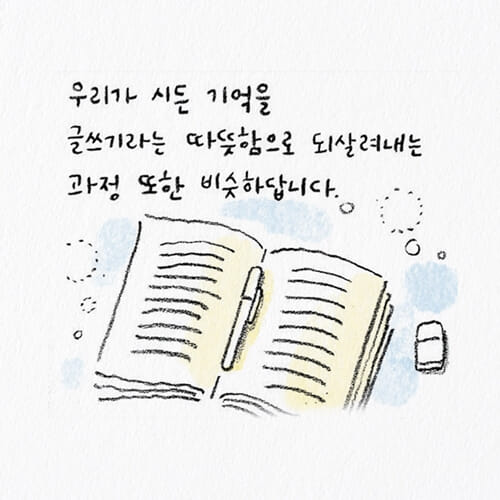 우리가 시든 기억을
글쓰기라는 따뜻함으로 되살려내는
과정 또한 비슷하답니다.